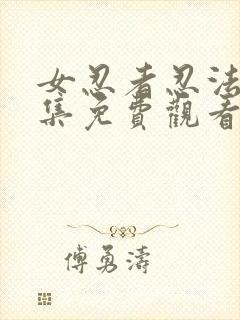 女忍者忍法
集免費觀看
傅勇濤